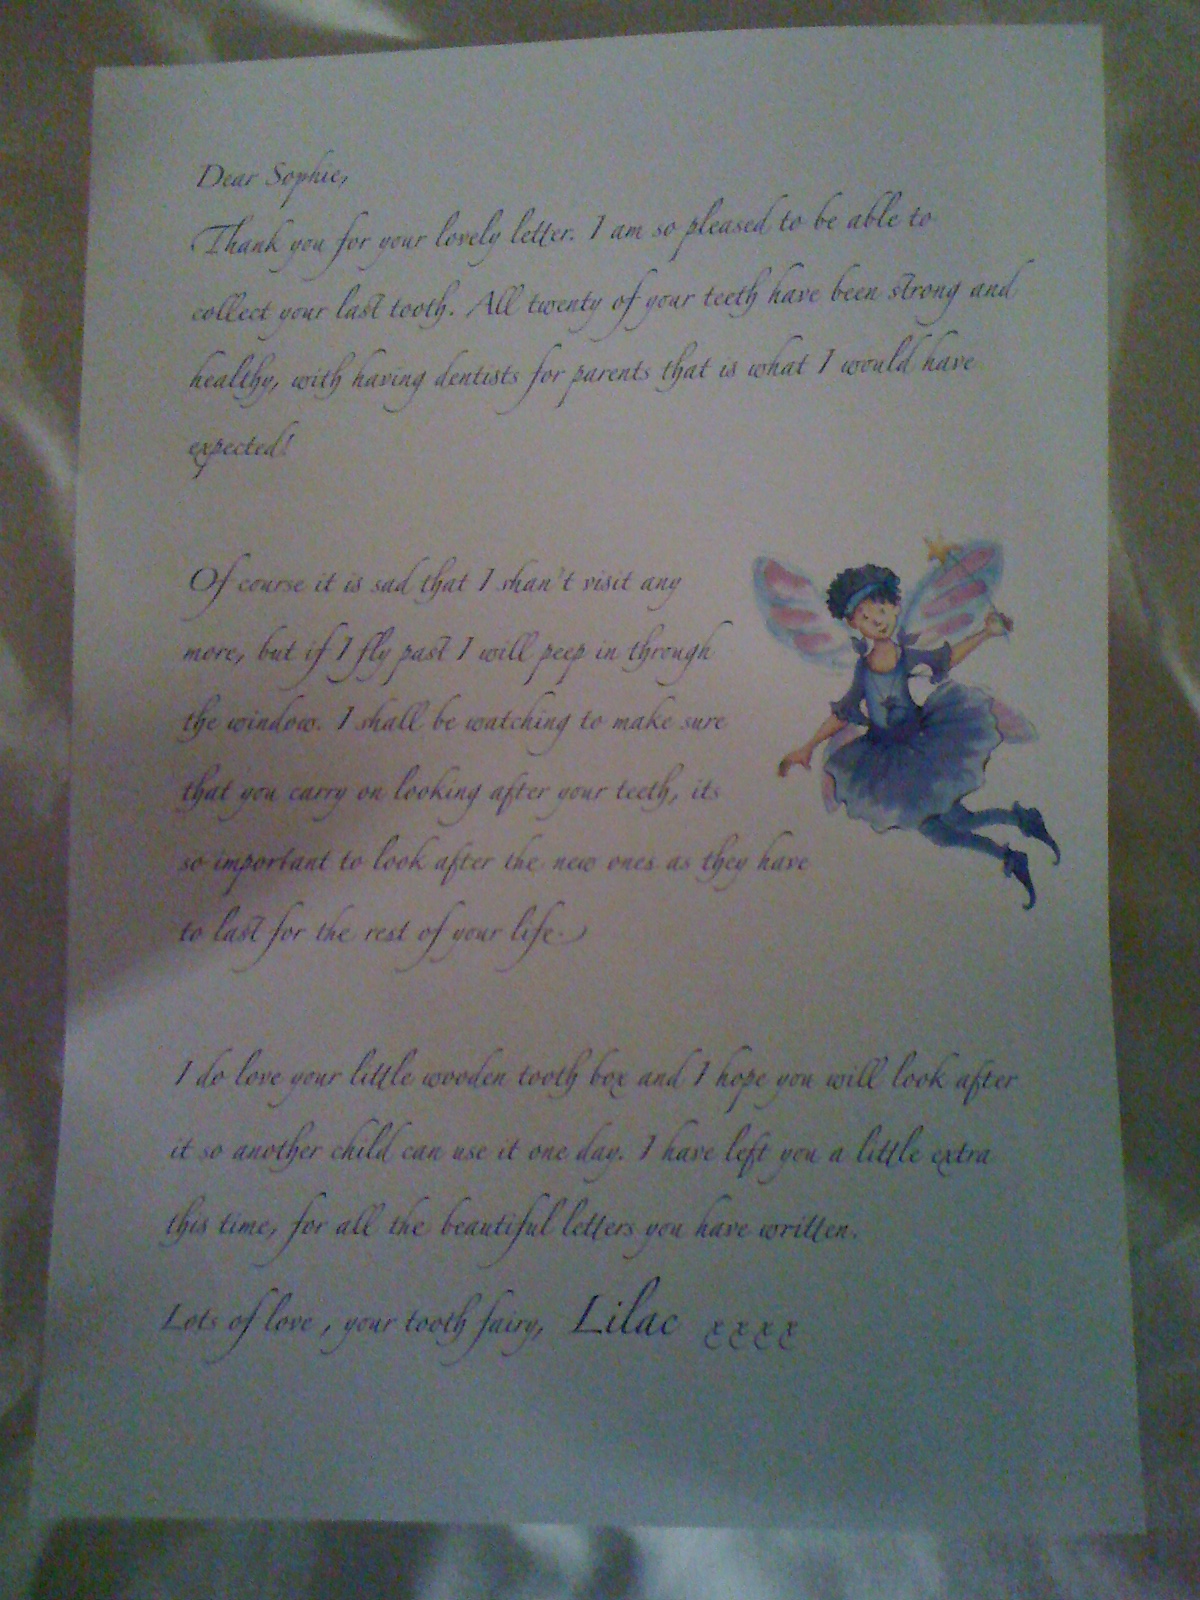 Dear Sophie,
Thank you for your lovely letter. I am so pleased to be able to
collect your last tooth. All twenty of your teeth have been strong and
healthy, with having dentists for parents that is what I would have
expected!
Of course it is sad that I shan't visit any
more, but if I fly past I will peep in through
the window. I shall be watching to make sure
that you carry on looking after your teeth, its
so important to look after the new ones as they have
to last for the rest of your life.
I do love your little wooden tooth box and I hope you will look after
it so another child can use it one day. I have left you a little extra
this time, for all the beautiful letters you have written.
Lots of love , your tooth fairy, Lilac xxxx